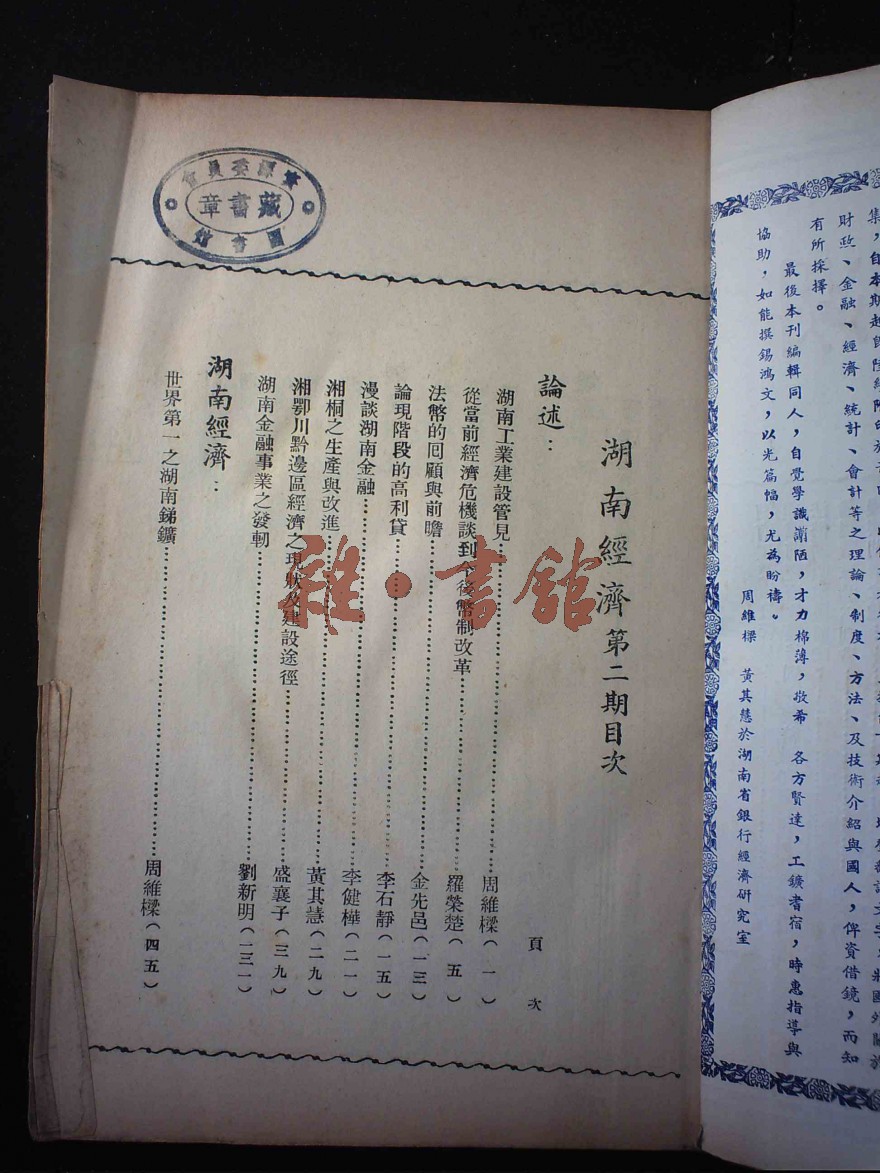 財政、金融、經濟、統計、會計等之理論、制度、方法、及技術介紹與國人，俾資借鏡，而知
有所採擇。
最後本刊編輯同人，自覺學識谫陋，才力棉薄，敬希　各方賢達，工鑛耆宿，時惠指導與
協助，如能撰錫鴻文，以光篇幅，尤為盼禱。
周維樑　黃其慧於湖南省銀行經濟研究室
資源委員會
藏書章
圖書館
湖南經濟第二期目次
頁次
論述：
湖南工業建設管見……周維樑（一）
從當前經濟危機談到今後幣制改革……羅榮楚（五）
法幣的回顧與前瞻……金先邑（一三）
論現階段的高利貸……李石靜（一五）
漫談湖南金融……李健樺（二一）
湘桐之生產與改進……黃其慧（二九）
湘鄂川黔邊區經濟之現狀及建設途徑……盛襄子（三九）
湖南金融事業之發軔……劉新明（一三一）
湖南經濟：
世界第一之湖南銻鑛……周維樑（四五）
雅·書館